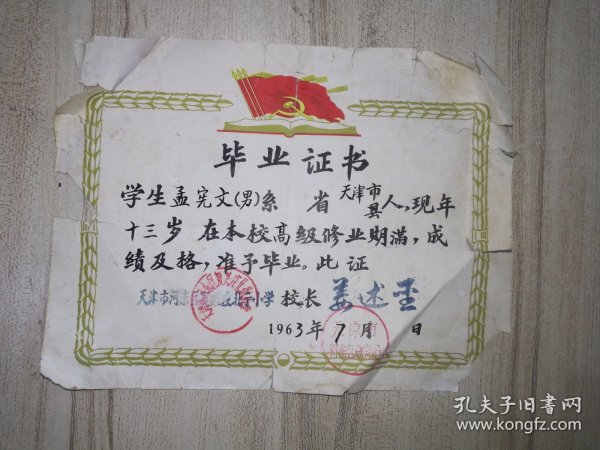 毕业证书
学生孟宪文(男)系 省天津市县人,现年
十三岁 在本校高级修业期满,成
绩及格,准予毕业。此证
天津市河东 小学 校长 姜述
1963年7月 日
天津市
孔夫子旧书网
www.kongfz.com